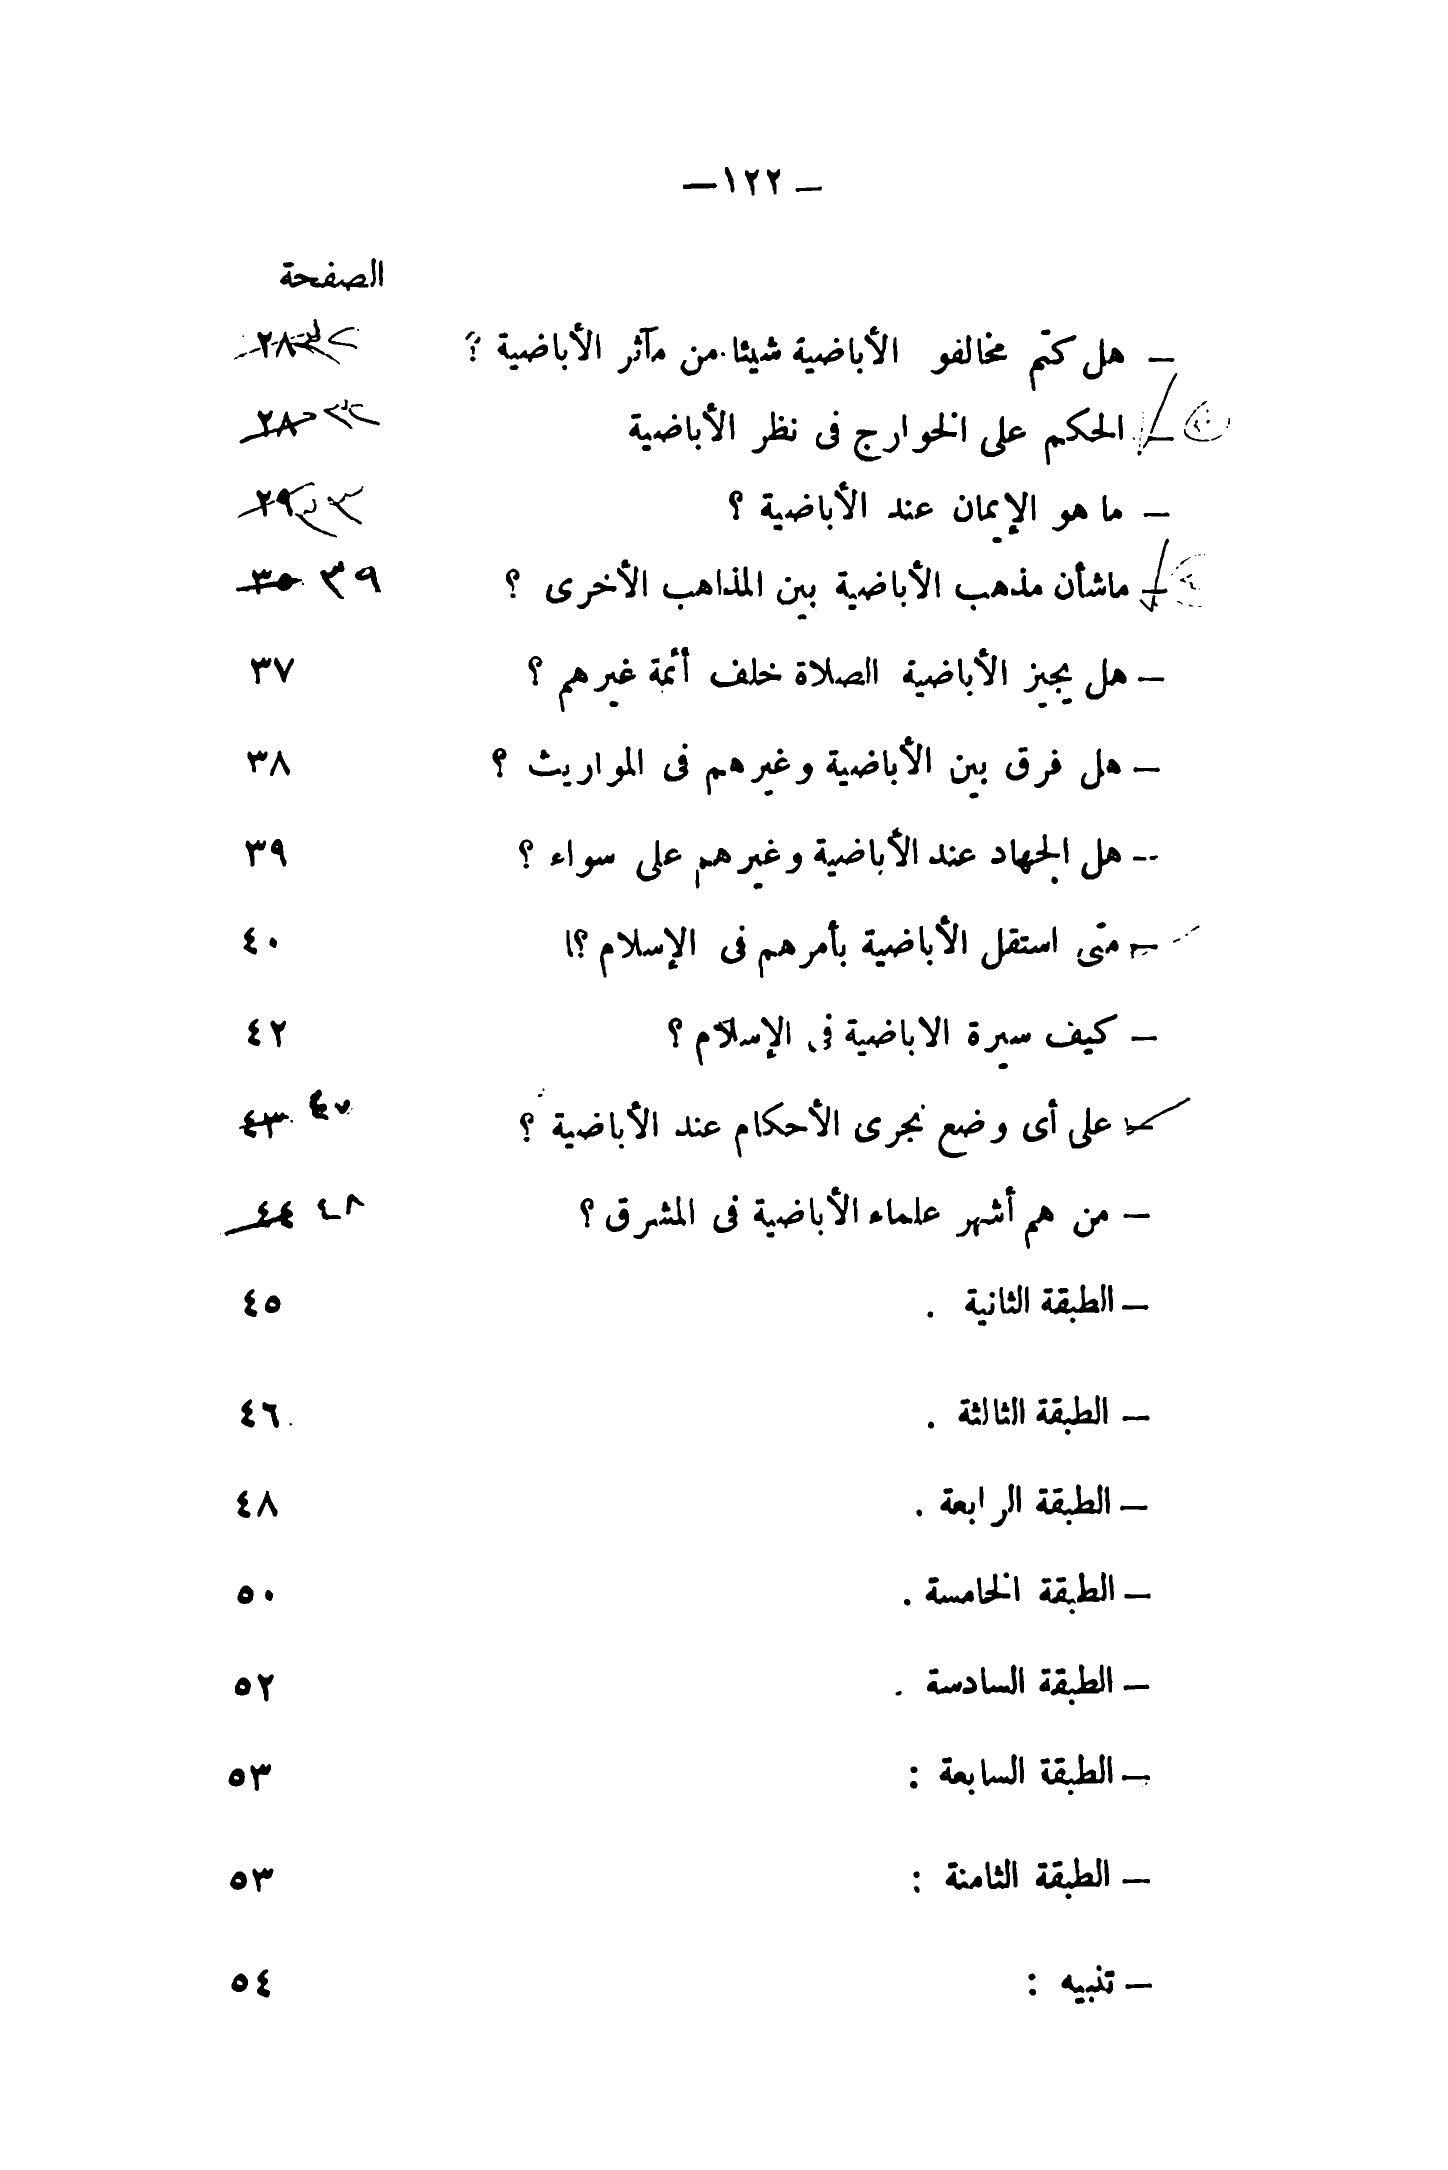 – ١٢٢ –
الصفحة
– هل كتم مخالفو الأباضية شيئا من مآثر الأباضية ؟ ٢٨
– الحكم على الخوارج فى نظر الأباضية ٢٨
– ما هو الإيمان عند الأباضية ؟ ٢٩
– ماشأن مذهب الأباضية بين المذاهب الأخرى ؟ ٣٩ ٣٥
– هل يجيز الأباضية الصلاة خلف أئمة غيرهم ؟ ٣٧
– هل فرق بين الأباضية وغيرهم فى المواريث ؟ ٣٨
– هل الجهاد عند الأباضية وغيرهم على سواء ؟ ٣٩
– متى استقل الأباضية بأمرهم فى الإسلام ؟ ٤٠
– كيف سيرة الاباضية فى الإسلام ؟ ٤٢
– على أى وضع تجرى الأحكام عند الأباضية ؟ ٤٧ ٤٣
– من هم أشهر علماء الأباضية فى المشرق ؟ ٤٨ ٤٤
– الطبقة الثانية . ٤٥
– الطبقة الثالثة . ٤٦
– الطبقة الرابعة . ٤٨
– الطبقة الخامسة . ٥٠
– الطبقة السادسة . ٥٢
– الطبقة السابعة : ٥٣
– الطبقة الثامنة : ٥٣
– تنبيه : ٥٤